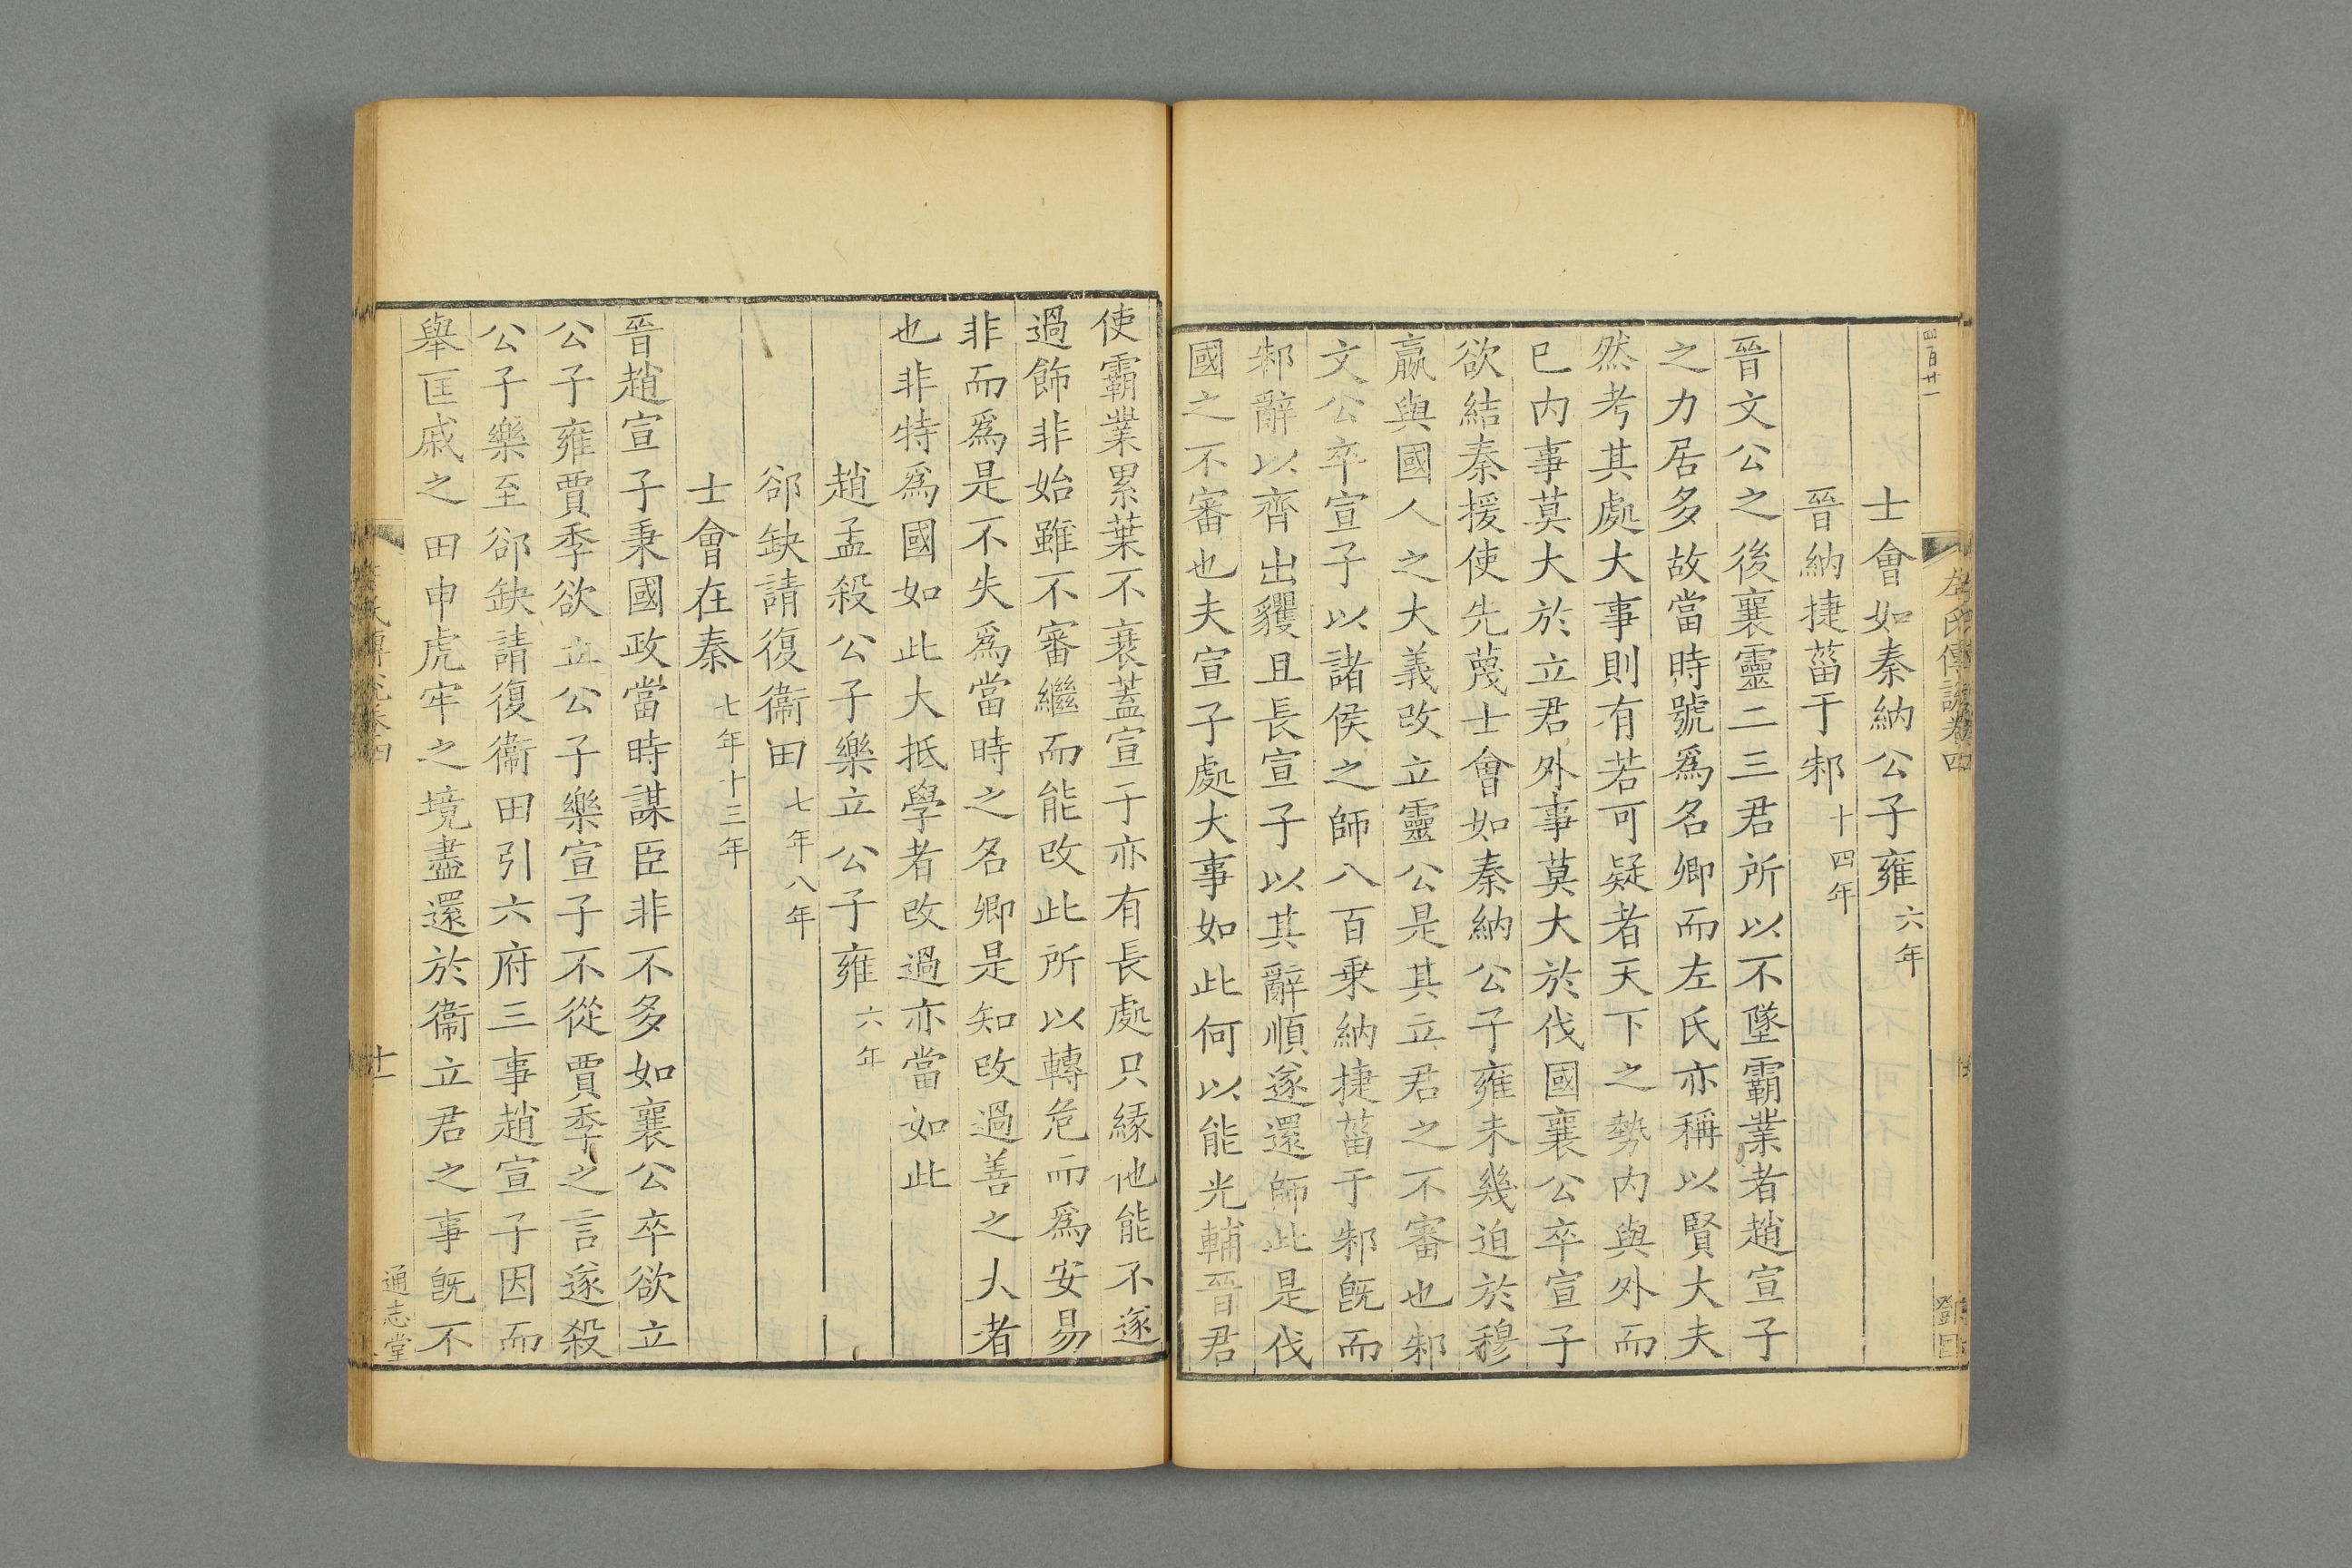 左氏傳說卷四
士會如秦納公子雍六年
晉納捷菑于邾十四年
晉文公之後襄靈二三君所以不墜霸業者趙宣子
之力居多故當時號爲名卿而左氏亦稱以賢大夫
然考其處大事則有若可疑者天下之勢内與外而
已内事莫大於立君外事莫大於伐國襄公卒宣子
欲結秦援使先蔑士會如秦納公子雍未幾迫於穆
嬴與國人之大義改立靈公是其立君之不審也邾
文公卒宣子以諸侯之師八百乗納捷菑于邾旣而
邾辭以齊出貜且長宣子以其辭順遂還師此是伐
國之不審也夫宣子處大事如此何以能光輔晉君
使霸業累葉不衰蓋宣子亦有長處只緣他能不遂
過飾非始雖不審繼而能改此所以轉危而爲安易
非而爲是不失爲當時之名卿是知改過善之大者
也非特爲國如此大抵學者改過亦當如此
趙孟殺公子樂立公子雍六年
郤缺請復衞田七年八年
士會在秦七年十三年
晉趙宣子秉國政當時謀臣非不多如襄公卒欲立
公子雍賈季欲立公子樂宣子不從賈季之言遂殺
公子樂至郤缺請復衞田引六府三事趙宣子因而
舉匡戚之田申虎牢之境盡還於衞立君之事旣不
十一
通志堂